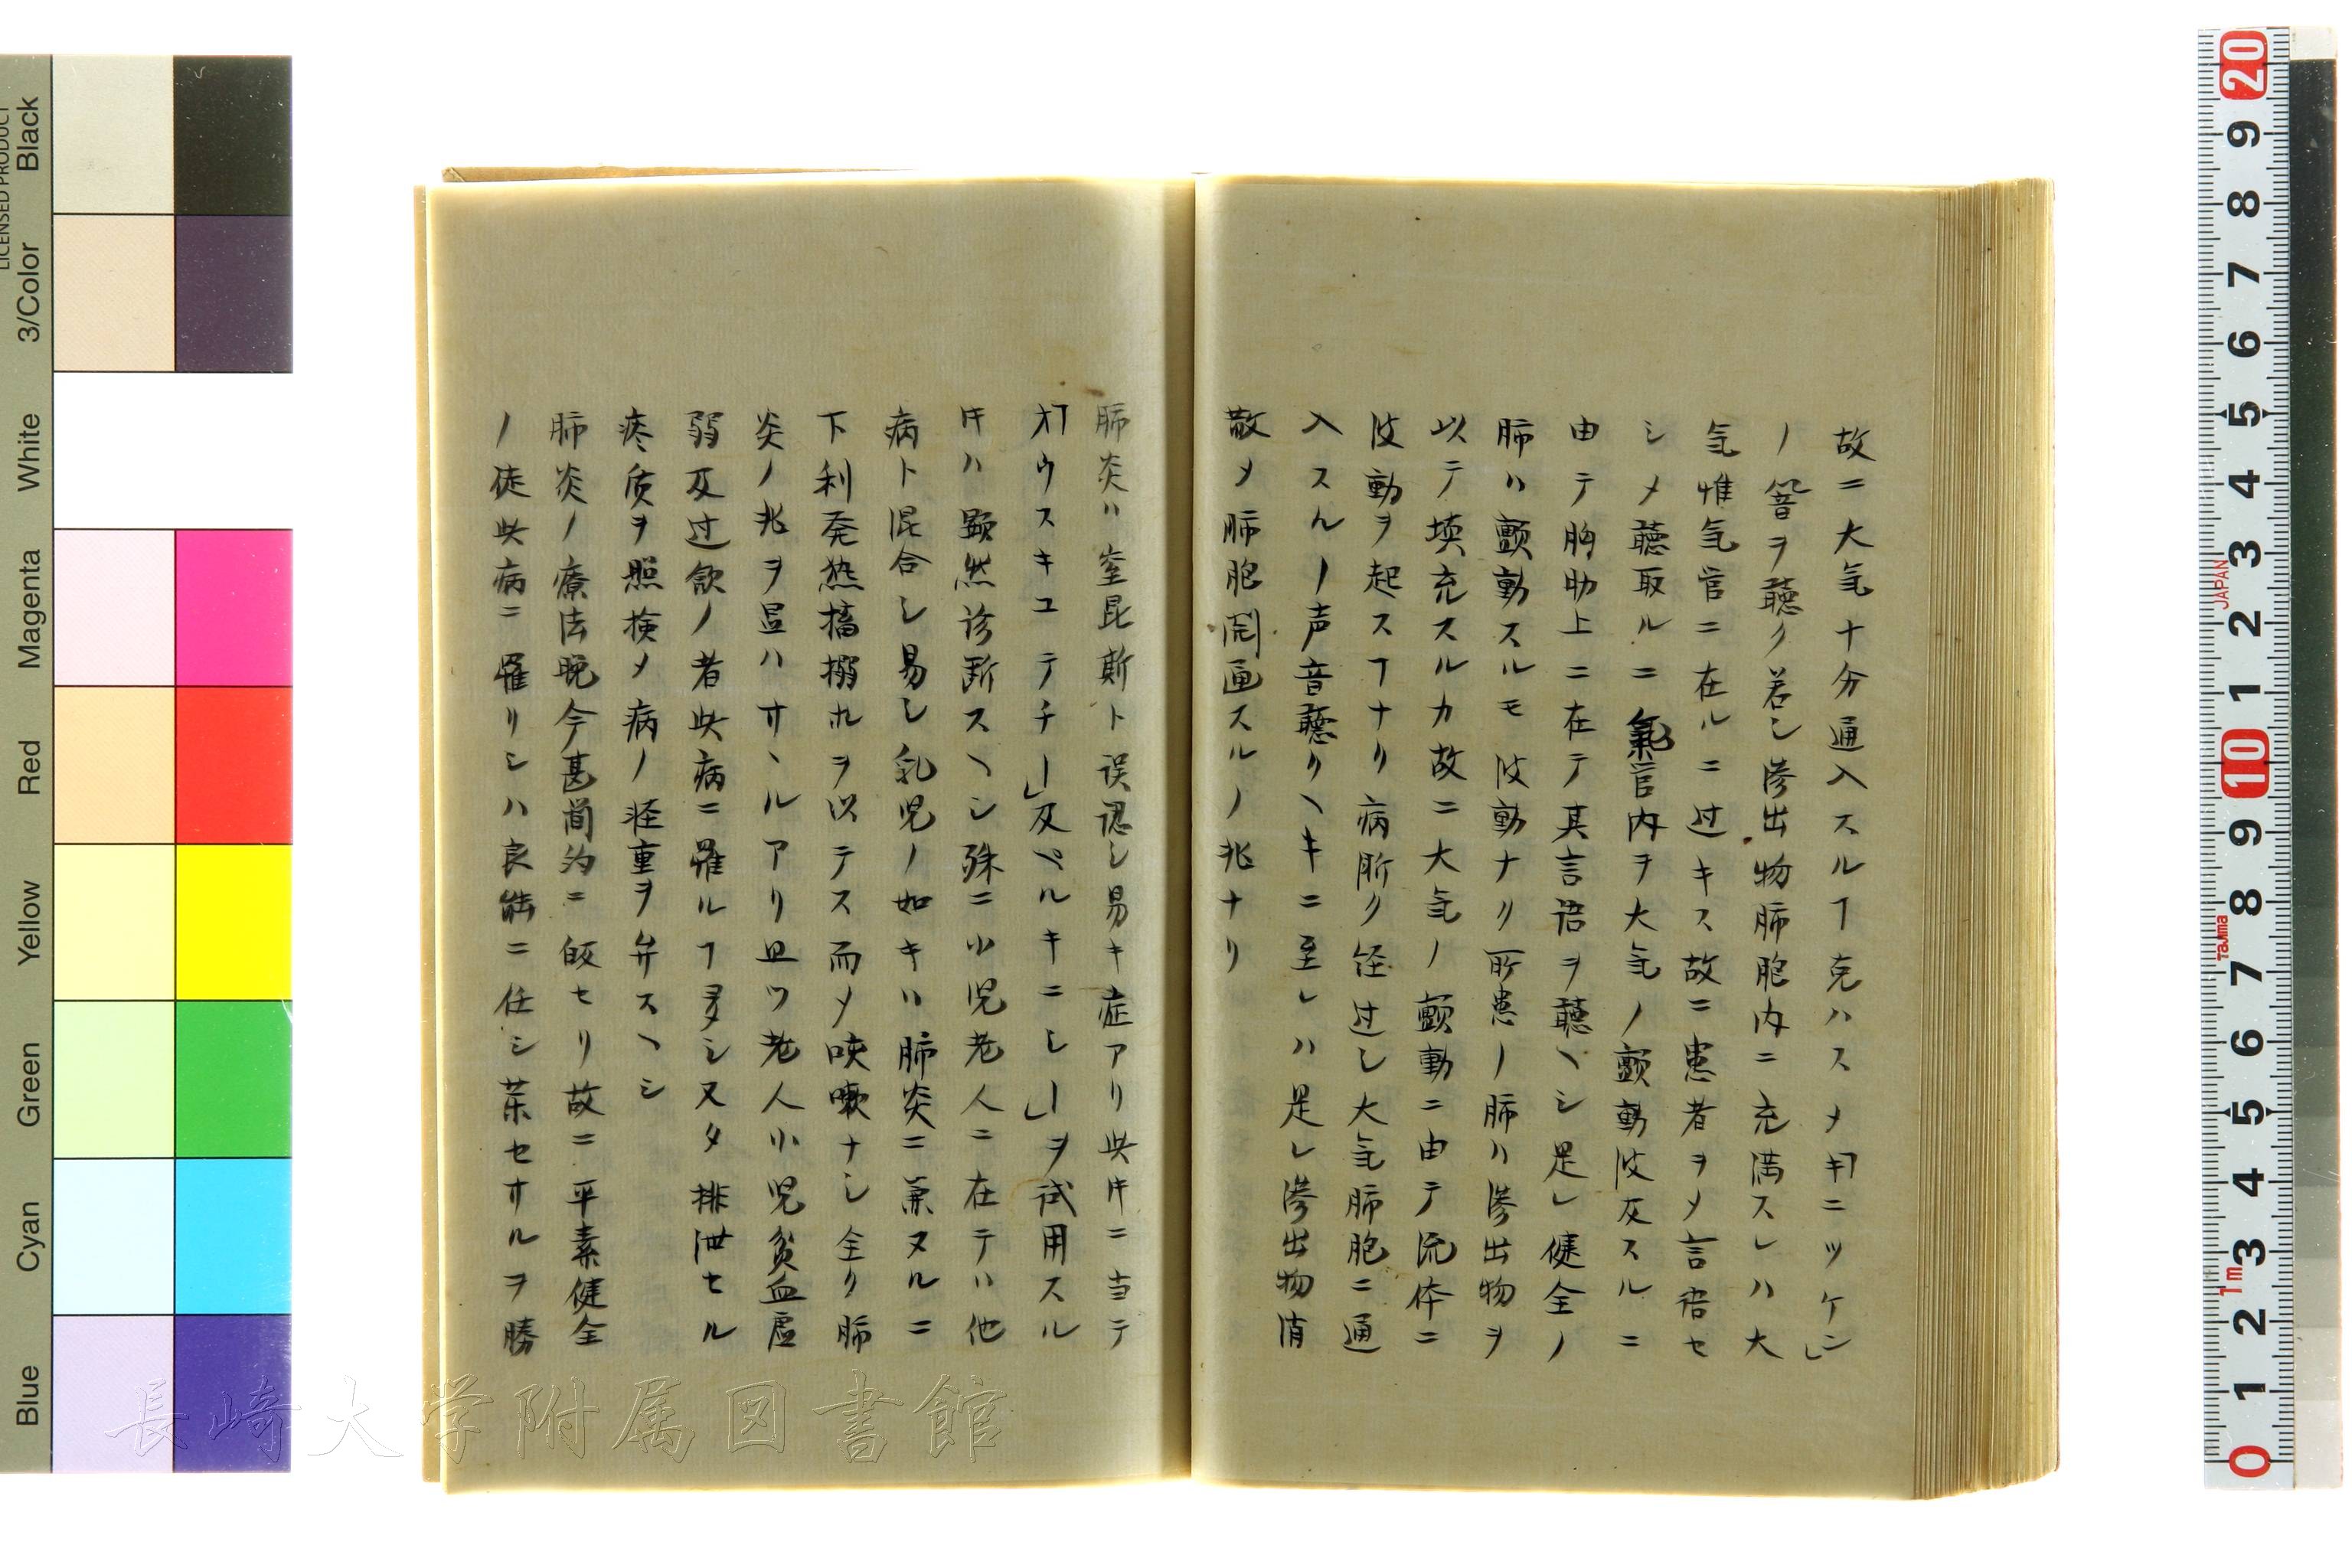 故ニ大気十分通入スルヿ克ハスメ「キニツケン」
ノ音ヲ聴ク若シ滲出物肺胞内ニ充満スレハ大
気惟気官ニ在ルニ过キス故ニ患者ヲメ言语セ
シメ聴取ルニ氣官内ヲ大気ノ顫動波及スルニ
由テ胸肋上ニ在テ其言语ヲ聴ヘシ是レ健全ノ
肺ハ顫動スルモ波動ナリ所患ノ肺ハ滲出物ヲ
以テ填充スルカ故ニ大気ノ顫動ニ由テ流体ニ
波動ヲ起スヿナリ病所ク径过シ大気肺胞ニ通
入スルノ声音聴クヘキニ至レハ是レ滲出物消
散メ肺胞開通スルノ兆ナリ
肺炎ハ窒昆斯ト误認シ易キ症アリ此时ニ当テ
「オウスキユテチー」及「ペルキニレー」ヲ试用スル
时ハ顕然诊断スヘシ殊ニ小児老人ニ在テハ他
病ト混合シ易シ乳児ノ如キハ肺炎ニ兼ヌルニ
下利発热搐搦ホヲ以テス而メ咳嗽ナシ全ク肺
炎ノ兆ヲ显ハサヽルアリ且ツ老人小児貧血虚
弱及过飲ノ者此病ニ罹ルヿ多シ又タ排泄セル
痰质ヲ照検メ病ノ軽重ヲ弁スヘシ
肺炎ノ療法晩今甚簡約ニ皈セリ故ニ平素健全
ノ徒此病ニ罹リシハ良能ニ任シ薬セサルヲ勝